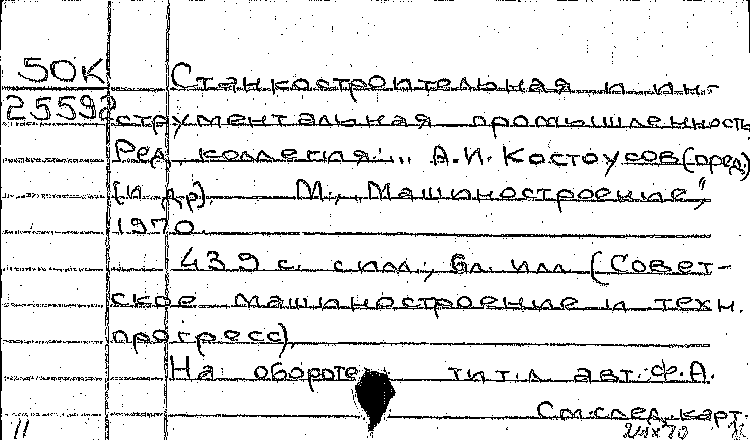 50К Станкостроительная и ин-
25592 струментальная промышленность
Ред. коллегия: .. А.И. Костоусов (пред.)
[и др]. М., "Машиностроение",
1970.
439 с. с илл.; 6л. илл (Совет-
ское машиностроение и техн.
прогресс).
На обороте тит.л авт: Ф.А.
См.след.карт.
11 24х70